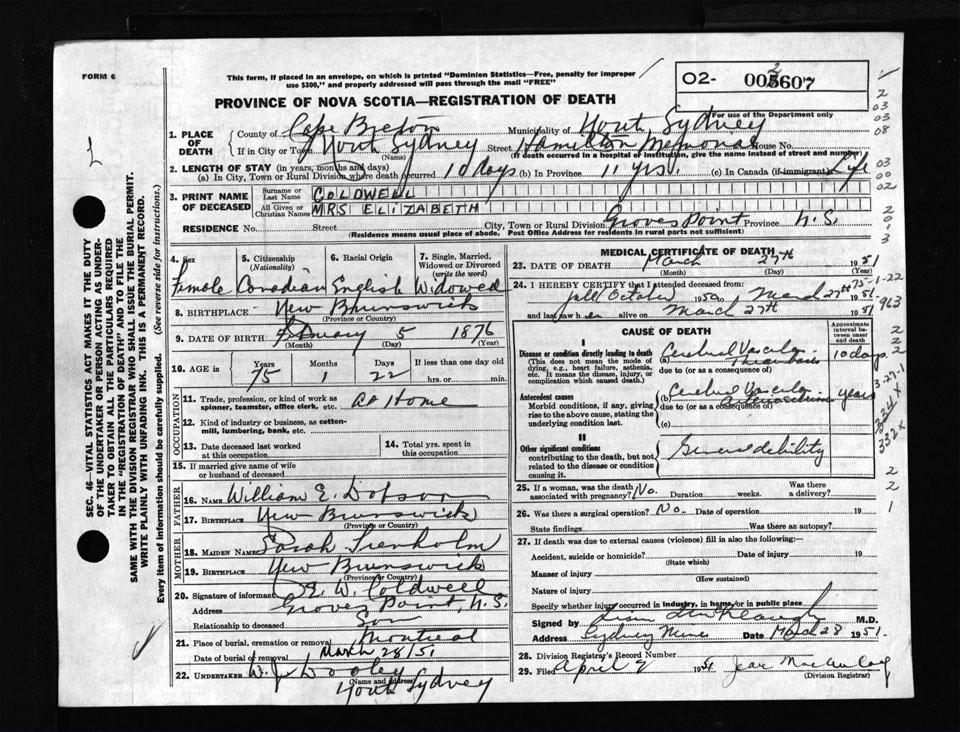 FORM 6
This form, if placed in an envelope, on which is printed "Dominion Statistics—Free, penalty for improper
use $300," and properly addressed will pass through the mail "FREE"
O2- 005607
For use of the Department only
PROVINCE OF NOVA SCOTIA—REGISTRATION OF DEATH
1. PLACE OF DEATH County of Cape Breton Municipality of North Sydney
If in City or Town North Sydney (Name) Street Hamilton Memorial House No.
(If death occurred in a hospital or institution, give the name instead of street and number)
2. LENGTH OF STAY (in years, months and days)
(a) In City, Town or Rural Division where death occurred 10 days (b) In Province 11 yrs. (c) In Canada (if immigrant) Life
3. PRINT NAME OF DECEASED Surname or Last Name COLDWELL
All Given or Christian Names MRS ELIZABETH
RESIDENCE No. Street City, Town or Rural Division Groves Point Province N.S.
(Residence means usual place of abode. Post Office Address for residents in rural parts not sufficient)
4. Sex Female
5. Citizenship (Nationality) Canadian
6. Racial Origin English
7. Single, Married, Widowed or Divorced (write the word) Widowed
8. BIRTHPLACE New Brunswick
(Province or Country)
9. DATE OF BIRTH February 5 1876
(Month) (Day) (Year)
10. AGE in Years 75 Months 1 Days 22 If less than one day old hrs. or min.
OCCUPATION
11. Trade, profession, or kind of work as spinner, teamster, office clerk, etc. At Home
12. Kind of industry or business, as cotten-mill, lumbering, bank, etc.
13. Date deceased last worked at this occupation.
14. Total yrs. spent in this occupation
15. If married give name of wife or husband of deceased
FATHER
16. NAME William E. Dobson
17. BIRTHPLACE New Brunswick
(Province or Country)
MOTHER
18. MAIDEN NAME Sarah Trenholm
19. BIRTHPLACE New Brunswick
(Province or Country)
20. Signature of informant E. W. Coldwell
Address Groves Point, N.S.
Relationship to deceased Son
21. Place of burial, cremation or removal Montreal
Date of burial or removal March 28/51
22. UNDERTAKER W. J. Dooley
(Name and address)
North Sydney
MEDICAL CERTIFICATE OF DEATH
23. DATE OF DEATH March 27th 1951
(Month) (Day) (Year)
24. I HEREBY CERTIFY that I attended deceased from:
October 1950 March 27th 1951
and last saw her alive on March 27th 1951
CAUSE OF DEATH
Approximate interval between onset and death
I
Disease or condition directly leading to death
(This does not mean the mode of dying, e.g., heart failure, asthenia, etc. It means the disease, injury, or complication which caused death.)
(a) Cerebral Vascular Thrombosis 10 days
due to (or as a consequence of)
Antecedent causes
Morbid conditions, if any, giving rise to the above cause, stating the underlying condition last.
(b) Cerebral Vascular Arteriosclerosis years
due to (or as a consequence of)
(c)
II
Other significant conditions
contributing to the death, but not related to the disease or condition causing it.
General debility
25. If a woman, was the death associated with pregnancy? No. Duration weeks. Was there a delivery?
26. Was there a surgical operation? No. Date of operation 19
State findings Was there an autopsy?
27. If death was due to external causes (violence) fill in also the following:—
Accident, suicide or homicide? Date of injury 19
(State which)
Manner of injury
(How sustained)
Nature of injury
Specify whether injury occurred in Industry, in home, or in public place
Signed by M.D.
Address Sydney Mines Date March 28 1951.
28. Division Registrar's Record Number
29. Filed April 2 1951 Jean MacAulay
(Division Registrar)
SEC. 46—VITAL STATISTICS ACT MAKES IT THE DUTY
OF THE UNDERTAKER OR PERSON ACTING AS UNDER-
TAKER TO OBTAIN ALL THE PARTICULARS REQUIRED
IN THE "REGISTRATION OF DEATH" AND TO FILE THE
SAME WITH THE DIVISION REGISTRAR WHO SHALL ISSUE THE BURIAL PERMIT.
WRITE PLAINLY WITH UNFADING INK. THIS IS A PERMANENT RECORD.
Every item of information should be carefully supplied. (See reverse side for instructions.)